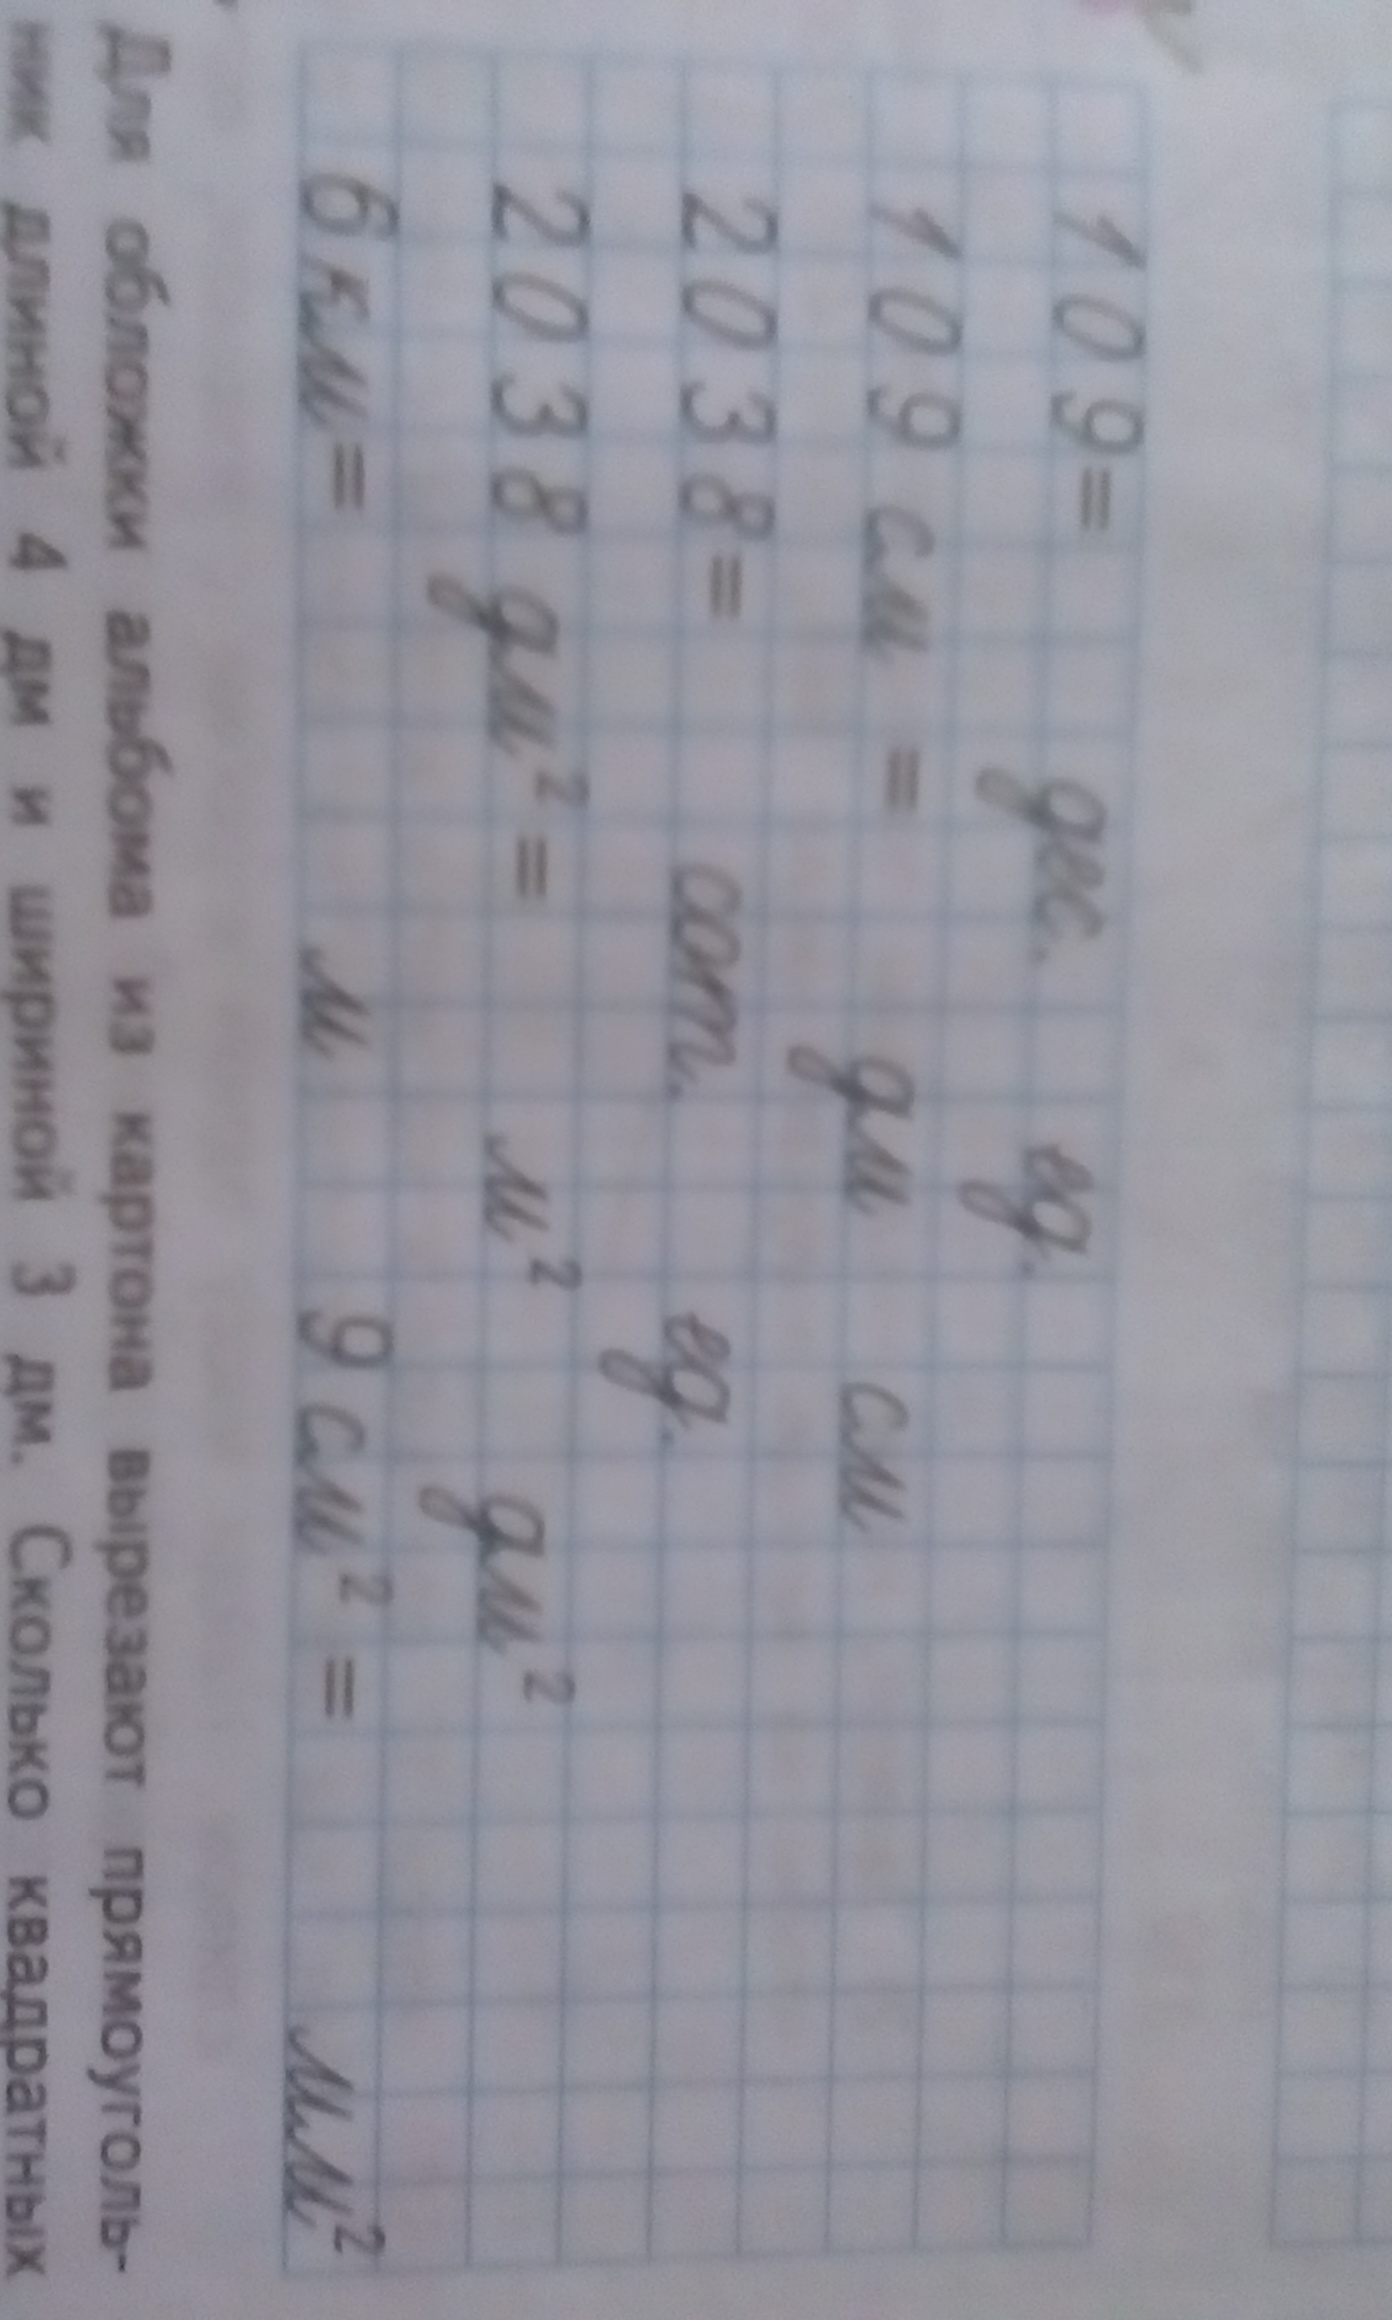 109= дес. ед.
109 см = дм см
2038= сот. ед.
2038 дм² = м² дм²
6 км = м 9 см² = мм²
Для обложки альбома из картона вырезают прямоуголь-
ник длиной 4 дм и шириной 3 дм. Сколько квадратных